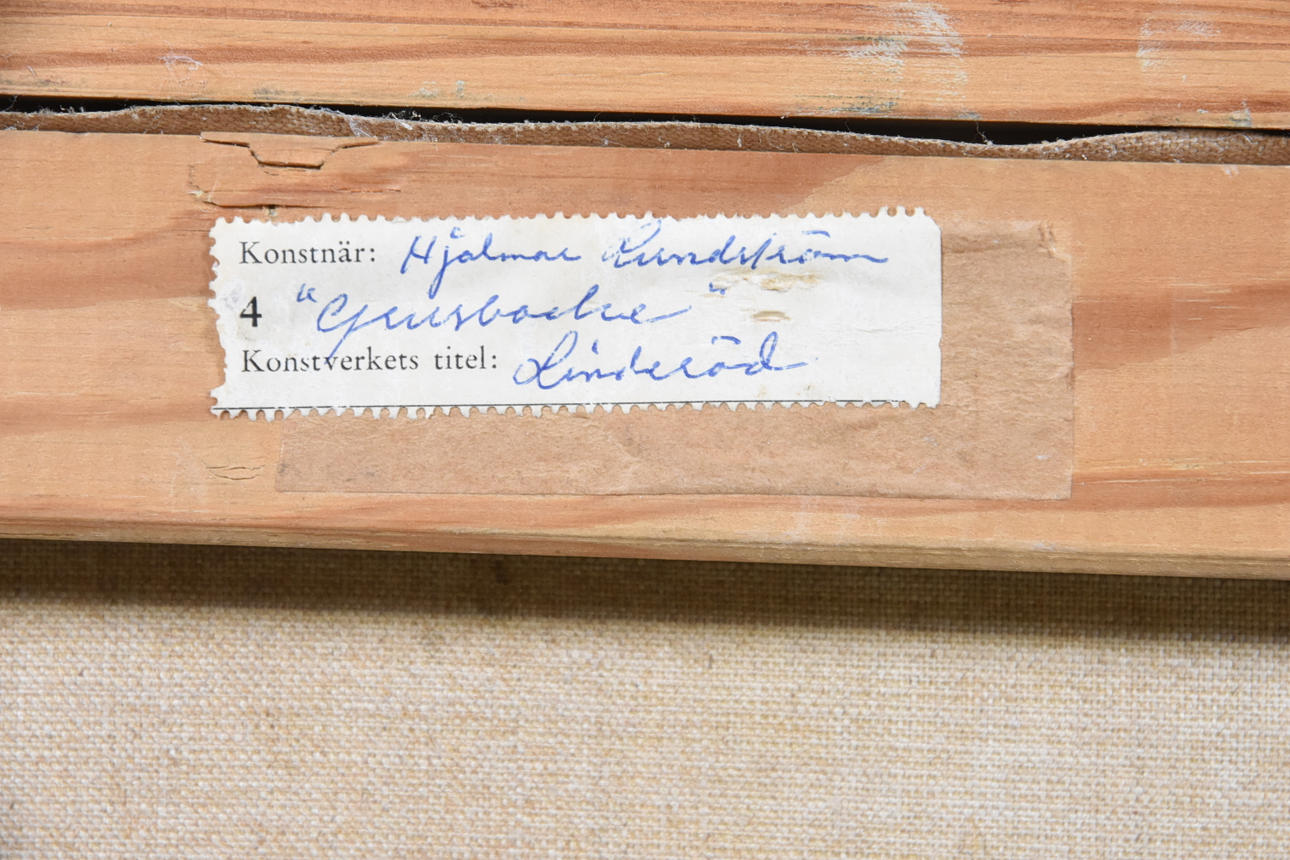 Konstnär: Hjalmar Lundström
4
Konstverkets titel: Linderöd